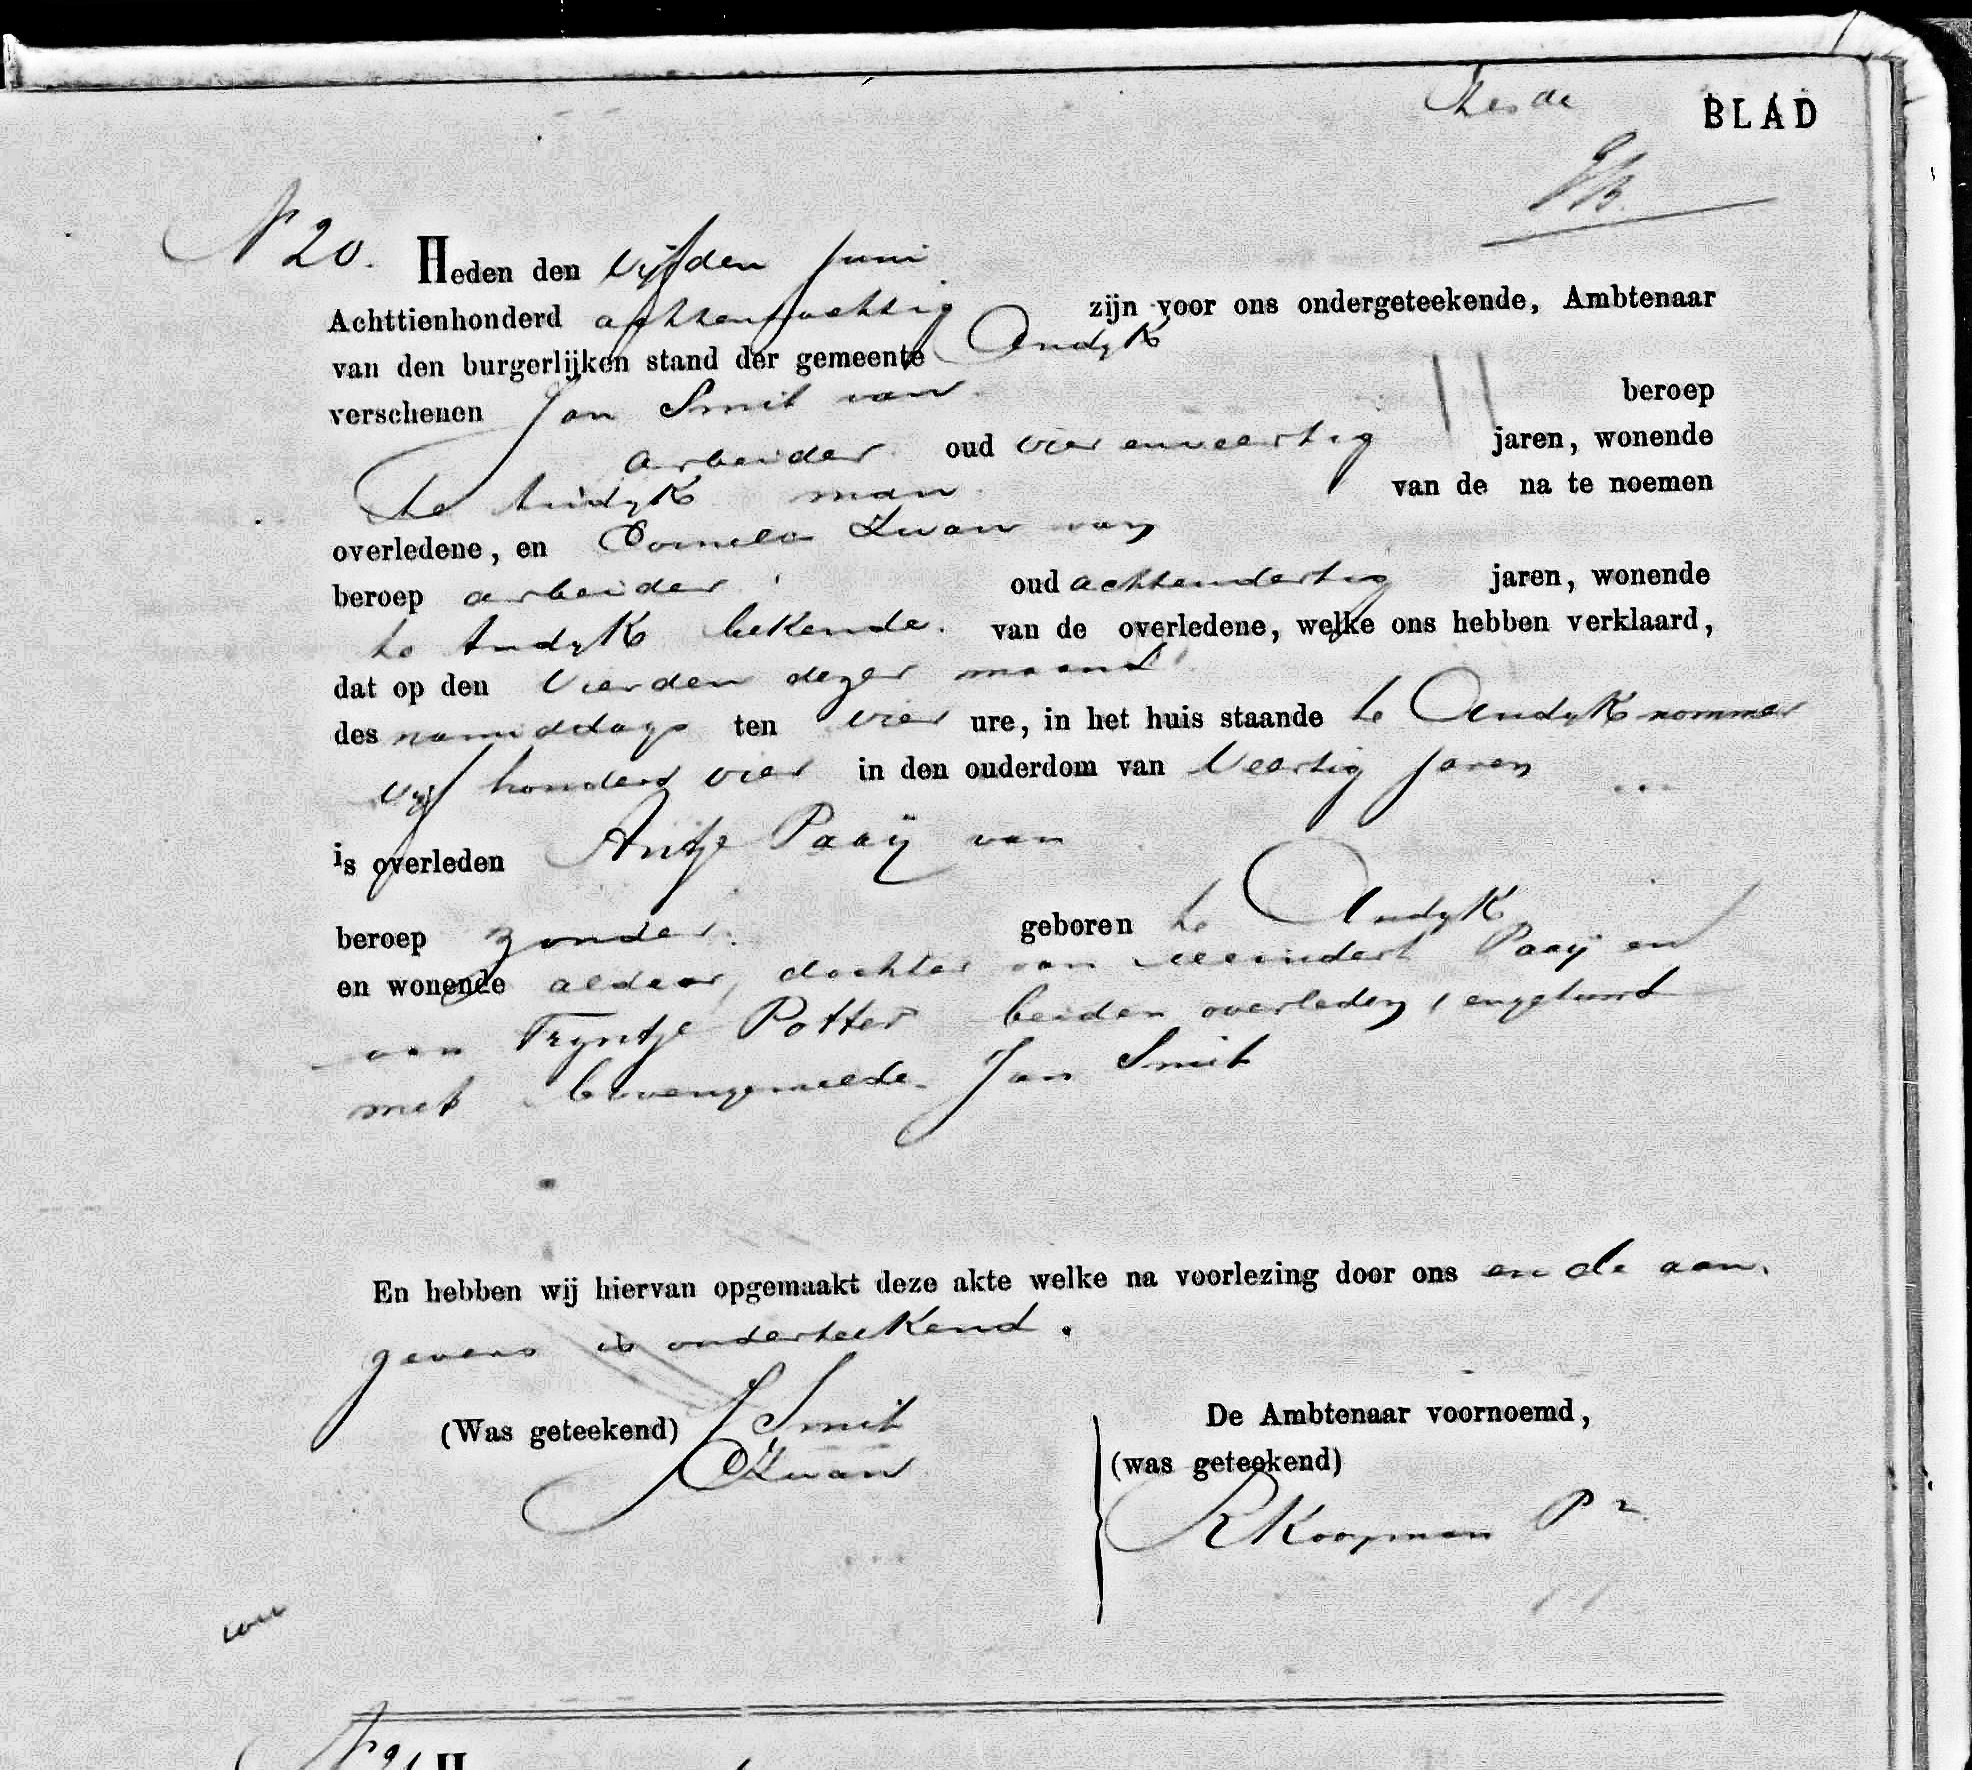 Zesde BLAD
N° 20. Heden den Vijfden Juni
Achttienhonderd achtentachtig zijn voor ons ondergeteekende, Ambtenaar
van den burgerlijken stand der gemeente Andijk
verschenen Jan Smit van beroep
arbeider oud vier en veertig jaren, wonende
te Andijk man van de na te noemen
overledene, en Cornelis Zwaan van
beroep arbeider oud achtendertig jaren, wonende
te Andijk bekende van de overledene, welke ons hebben verklaard,
dat op den Vierden dezer maand
des namiddags ten vier ure, in het huis staande te Andijk nommer
vijf honderd vier in den ouderdom van Veertig jaren
is overleden Antje Paaij van
beroep zonder geboren te Andijk
en wonende aldaar, dochter van Meindert Paaij en
van Trijntje Potter beiden overleden, engehuwd
met bovengemelde Jan Smit
En hebben wij hiervan opgemaakt deze akte welke na voorlezing door ons en de aan-
gevers is onderteekend.
(Was geteekend) J Smit De Ambtenaar voornoemd,
C Zwaan (was geteekend)
R Koopman Pz
N° 21 H